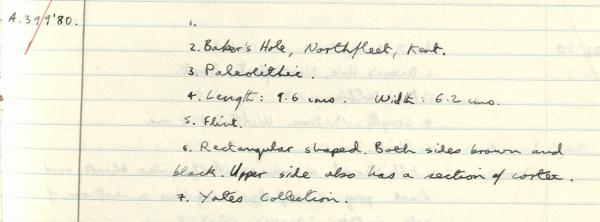 A.399'80.
1.
2. Baker's Hole, Northfleet, Kent.
3. Paleolithic.
4. Length: 9.6 cms. Width: 6.2 cms.
5. Flint.
6. Rectangular shaped. Both sides brown and
black. Upper side also has a section of cortex.
7. Yates Collection.